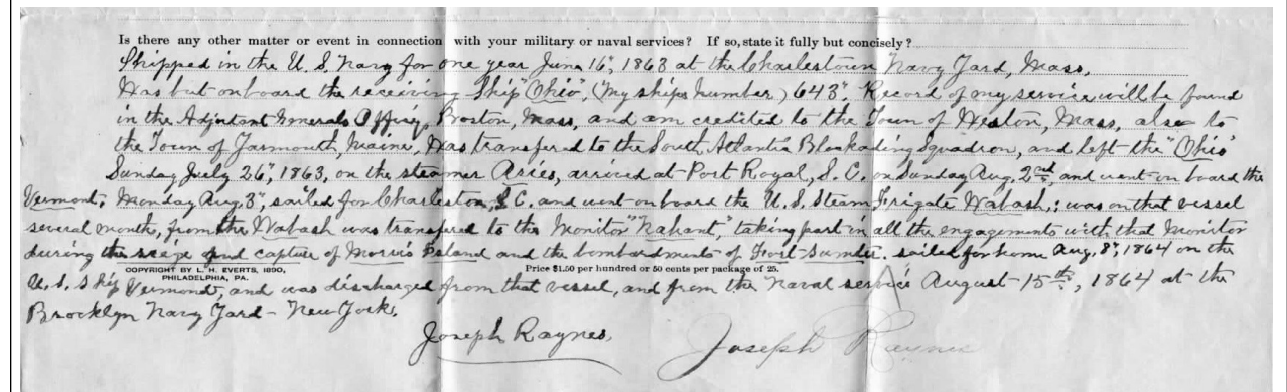 Is there any other matter or event in connection with your military or naval services? If so, state it fully but concisely?
Shipped in the U. S. Navy for one year June 16", 1863 at the Charlestown Navy Yard, Mass,
Was put onboard the receiving Ship "Ohio", (My ships number) 643". Record of my service will be found
in the Adjutant Generals Office, Boston, Mass, and am credited to the Town of Weston, Mass, also to
the Town of Yarmouth, Maine, Was transfered to the South Atlantic Blockading Squadron, and left the "Ohio"
Sunday July 26", 1863, on the steamer Aries, arrived at Port Royal, S. C. on Sunday Aug. 2nd, and went on board the
Vermont, Monday Aug. 3", sailed for Charleston, S C. and went on board the U. S. Steam Frigate Wabash,: was on that vessel
several months, from the Wabash was transfered to the Monitor "Nahant", taking part in all the engagements with that Monitor
during the seige and capture of Morris Island and the bombardments of Fort Sumter. sailed for home Aug. 8", 1864 on the
COPYRIGHT BY L. H. EVERTS, 1890,
PHILADELPHIA, PA.
Price $1.50 per hundred or 50 cents per package of 25.
U. S. Ship Vermont, and was discharged from that vessel, and from the Naval service August 15th, 1864 at the
Brooklyn Navy Yard - New York.
Joseph Raynes,
Joseph Raynes